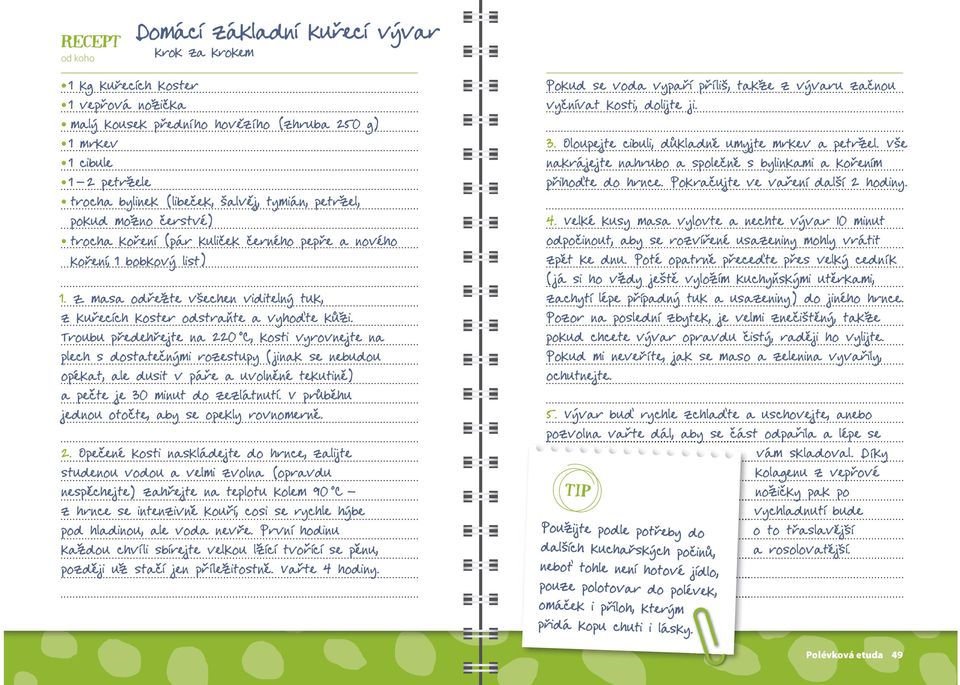 RECEPT
od koho
Domácí základní kuřecí vývar
krok za krokem
• 1 kg kuřecích koster
• 1 vepřová nožička
• malý kousek předního hovězího (zhruba 250 g)
• 1 mrkev
• 1 cibule
• 1–2 petržele
• trocha bylinek (libeček, šalvěj, tymián, petržel,
pokud možno čerstvé)
• trocha koření (pár kuliček černého pepře a nového
koření, 1 bobkový list)
1. Z masa odřežte všechen viditelný tuk,
z kuřecích koster odstraňte a vyhoďte kůži.
Troubu předehřejte na 220 °C, kosti vyrovnejte na
plech s dostatečnými rozestupy (jinak se nebudou
opékat, ale dusit v páře a uvolněné tekutině)
a pečte je 30 minut do zezlátnutí. V průběhu
jednou otočte, aby se opekly rovnomerně.
2. Opečené kosti naskládejte do hrnce, zalijte
studenou vodou a velmi zvolna (opravdu
nespěchejte) zahřejte na teplotu kolem 90 °C –
z hrnce se intenzivně kouří, cosi se rychle hýbe
pod hladinou, ale voda nevře. První hodinu
každou chvíli sbírejte velkou lžící tvořící se pěnu,
později už stačí jen příležitostně. Vařte 4 hodiny.
Pokud se voda vypaří příliš, takže z vývaru začnou
vyčnívat kosti, dolijte ji.
3. Oloupejte cibuli, důkladně umyjte mrkev a petržel. Vše
nakrájejte nahrubo a společně s bylinkami a kořením
přihoďte do hrnce. Pokračujte ve vaření další 2 hodiny.
4. Velké kusy masa vylovte a nechte vývar 10 minut
odpočinout, aby se rozvířené usazeniny mohly vrátit
zpět ke dnu. Poté opatrně přeceďte přes velký cedník
(já si ho vždy ještě vyložím kuchyňskými utěrkami,
zachytí lépe případný tuk a usazeniny) do jiného hrnce.
Pozor na poslední zbytek, je velmi znečištěný, takže
pokud chcete vývar opravdu čistý, raději ho vylijte.
Pokud mi nevěříte, jak se maso a zelenina vyvařily,
ochutnejte.
5. Vývar buď rychle zchlaďte a uschovejte, anebo
pozvolna vařte dál, aby se část odpařila a lépe se
vám skladoval. Díky
kolagenu z vepřové
nožičky pak po
vychladnutí bude
o to třaslavější
a rosolovatější.
TIP
Použijte podle potřeby do
dalších kuchařských počinů,
neboť tohle není hotové jídlo,
pouze polotovar do polévek,
omáček i příloh, kterým
přidá kopu chuti i lásky.
Polévková etuda 49